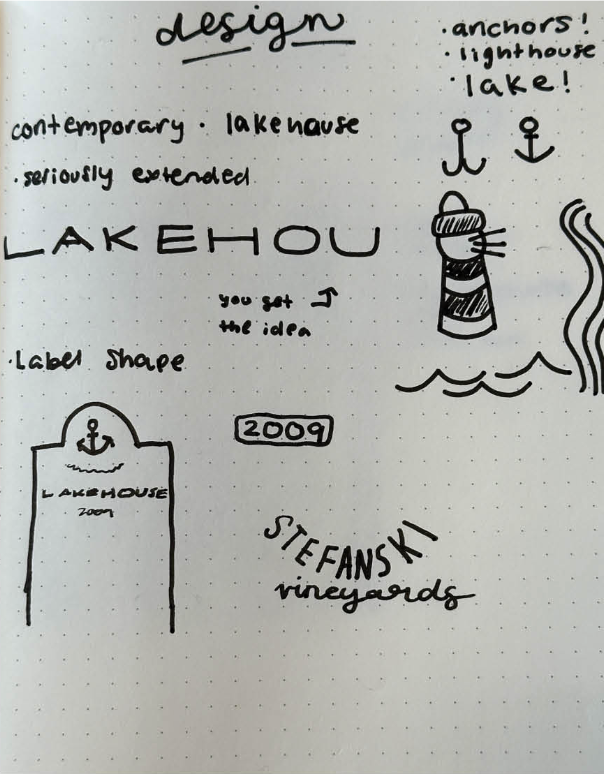 design
· anchors!
· lighthouse
· lake!
contemporary · lakehouse
· seriously extended
LAKEHOU
you get
the idea
· Label Shape
2009
LAKEHOUSE
2009
STEFANSKI
vineyards